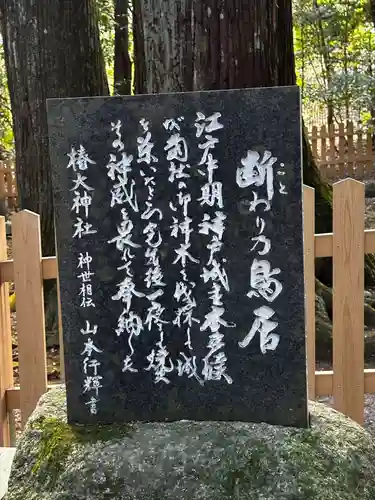 断わり乃鳥居
こと
江戸中期神戸城主本多候
が当社の御神木を伐採し城
を築いたら完成後一夜で焼失
その神威を畏れて奉納した
椿大神社 神世相伝 山本行輝書